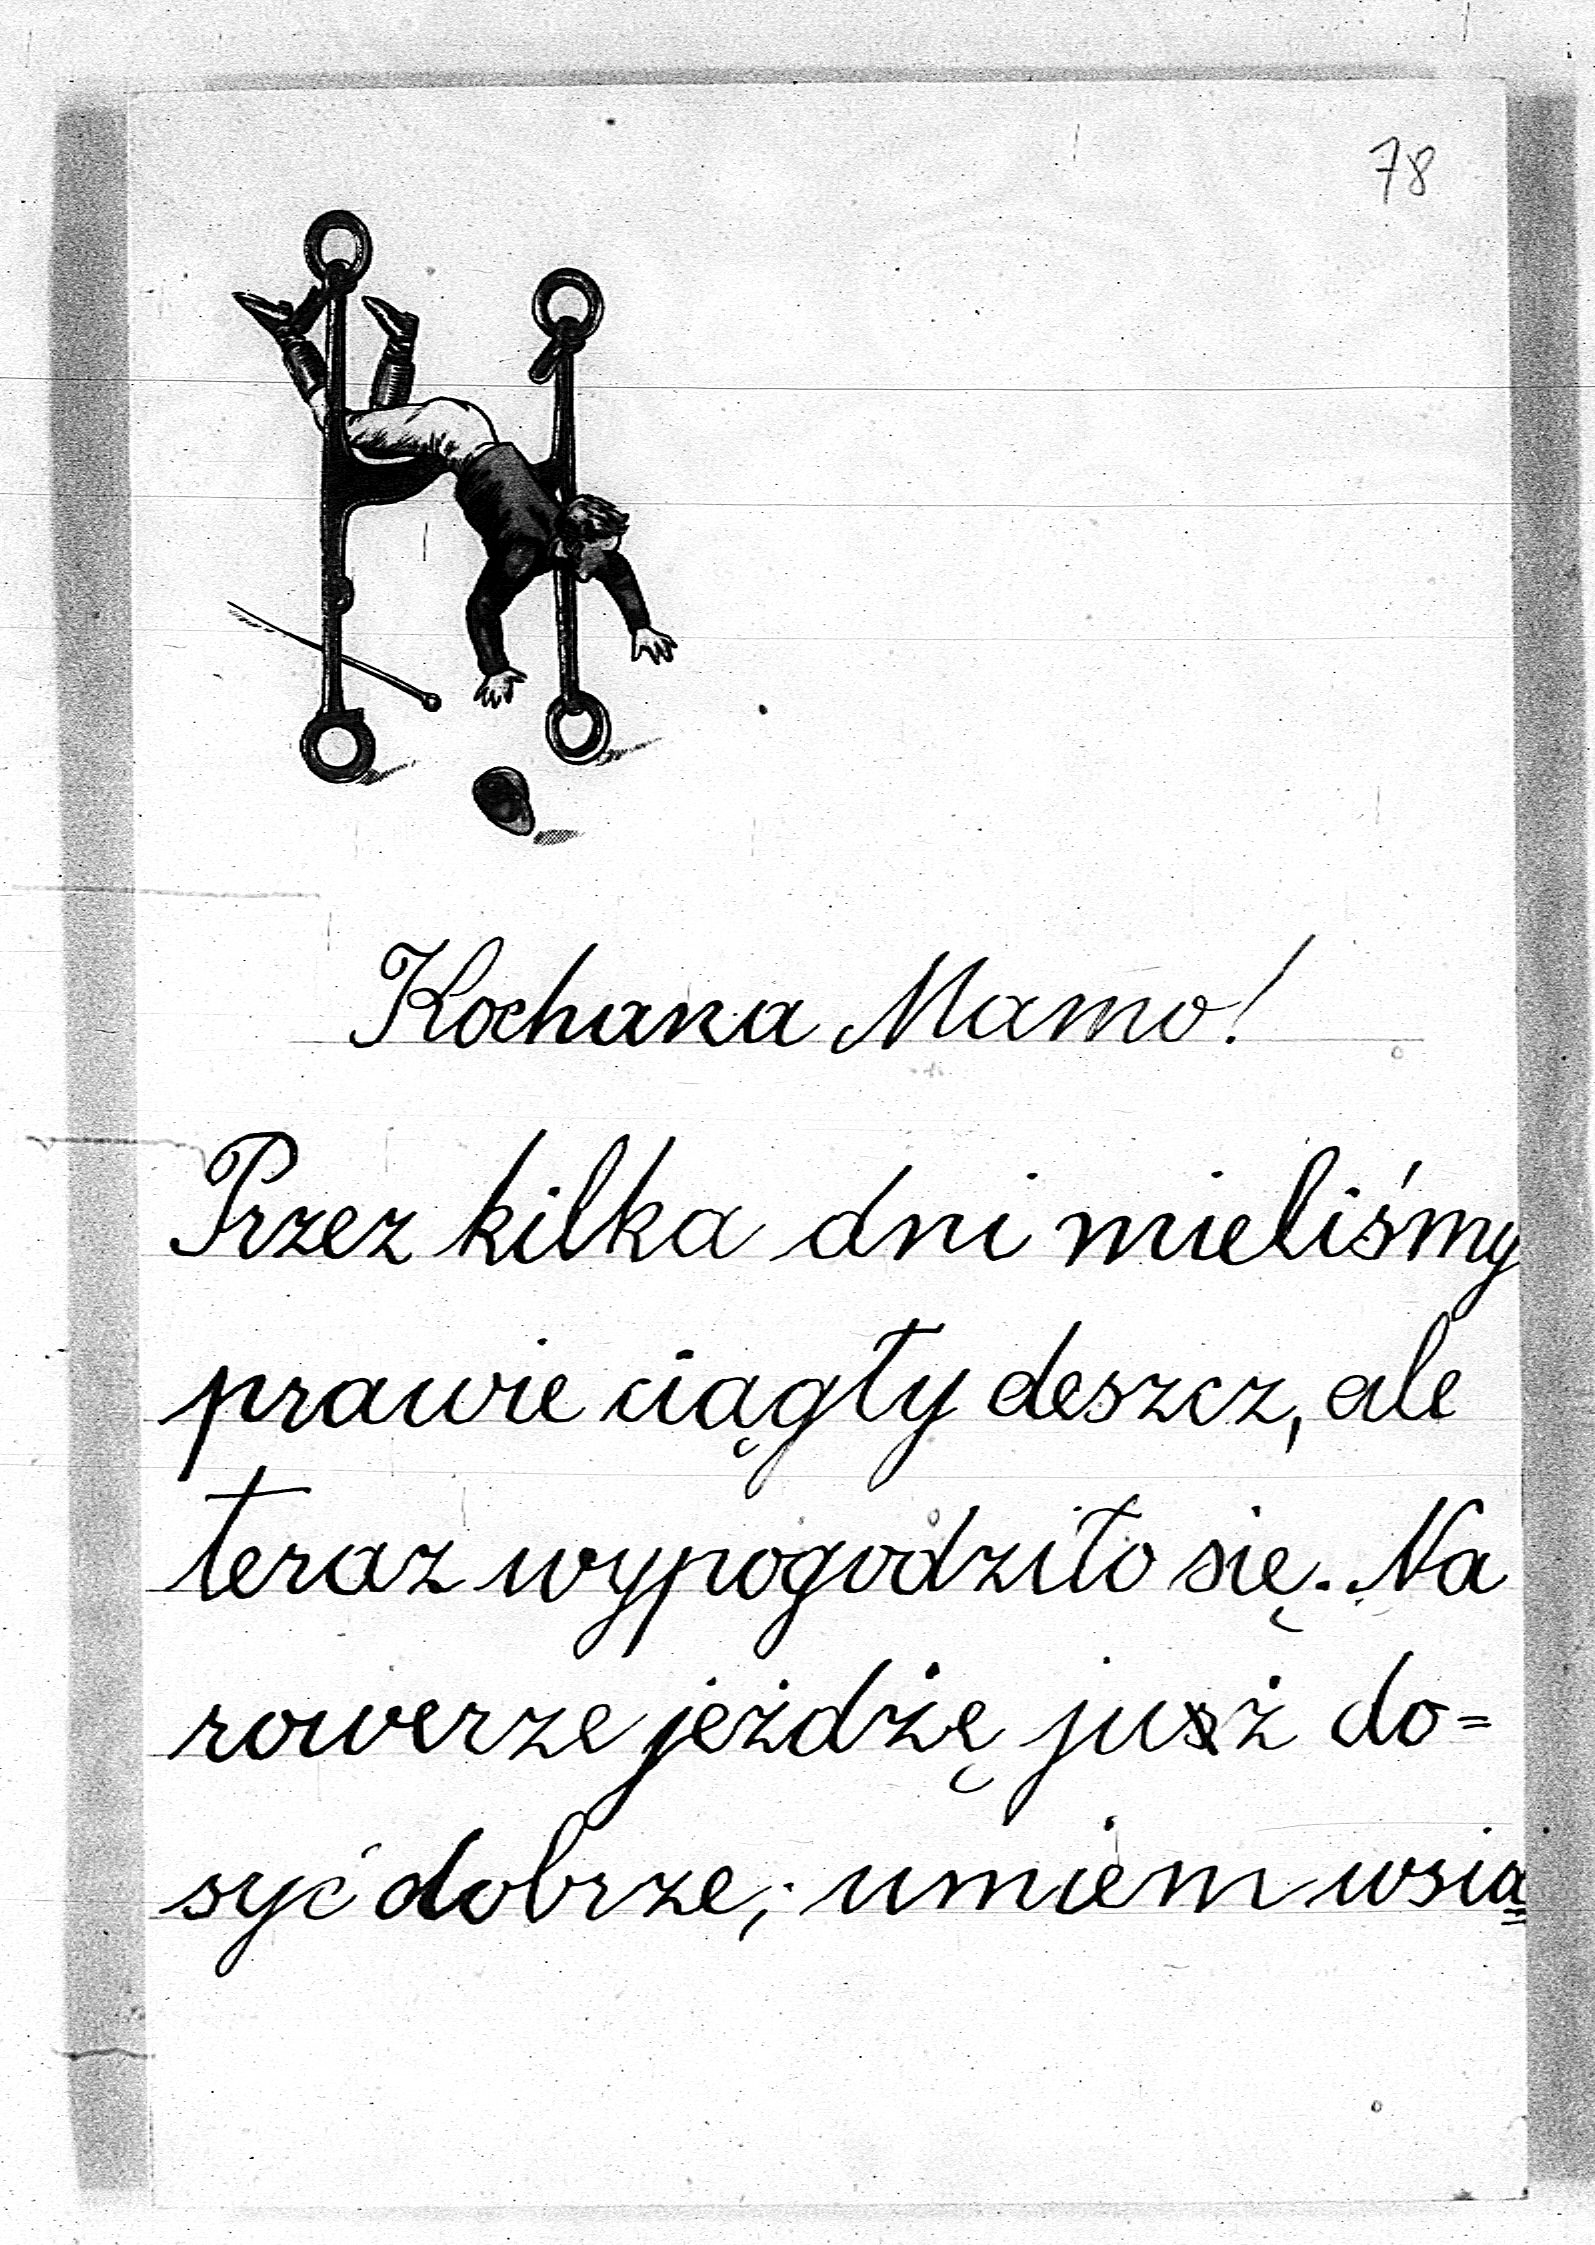 78
Kochana Mamo!
Przez kilka dni mieliśmy
prawie ciągły deszcz, ale
teraz wypogodziło się. Na
rowerze jeżdżę jusż do=
syć dobrze; umiem wsia=